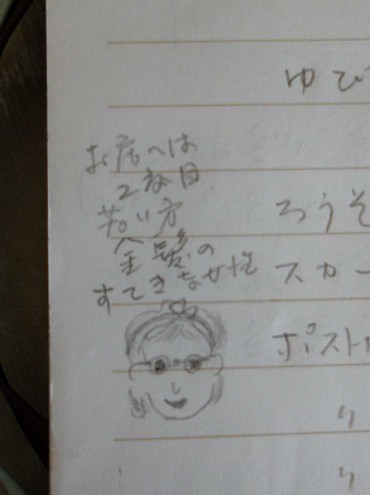 ゆび
お店へは
2番目
若い方
金髪の
すてきな女性
ろうそ
スカー
ポスト
り
り